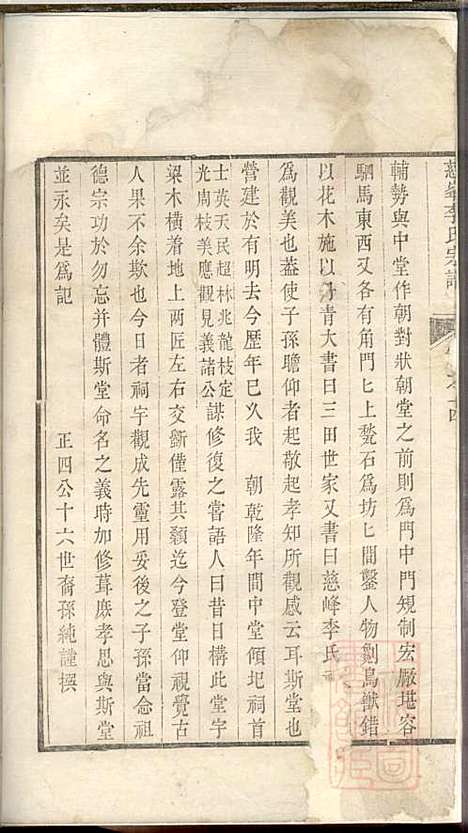 慈峯李氏宗譜
輔勢與中堂作朝對狀朝堂之前則爲門中門規制宏厰堪容
駟馬東西又各有角門匕上甃石爲坊匕間鑿人物劖鳥獸錯
以花木施以丹青大書曰三田世家又書曰慈峰李氏
爲觀美也葢使子孫瞻仰者起敬起孝知所觀感云耳斯堂也
營建於有明去今歴年已久我 朝乾隆年間中堂傾圮祠首
士英天民超林兆龍枝定
光周枝美應觀見義諸公
謀修復之嘗語人曰昔日構此堂字
樑木橫着地上两匠左右交斵僅露其顙迄今登堂仰視覺古
人果不余欺也今日者祠宇觀成先靈用妥後之子孫當念祖
德宗功於勿忘并體斯堂命名之義時加修葺庶孝思與斯堂
並永矣是爲記
正四公十六世裔孫純謹撰